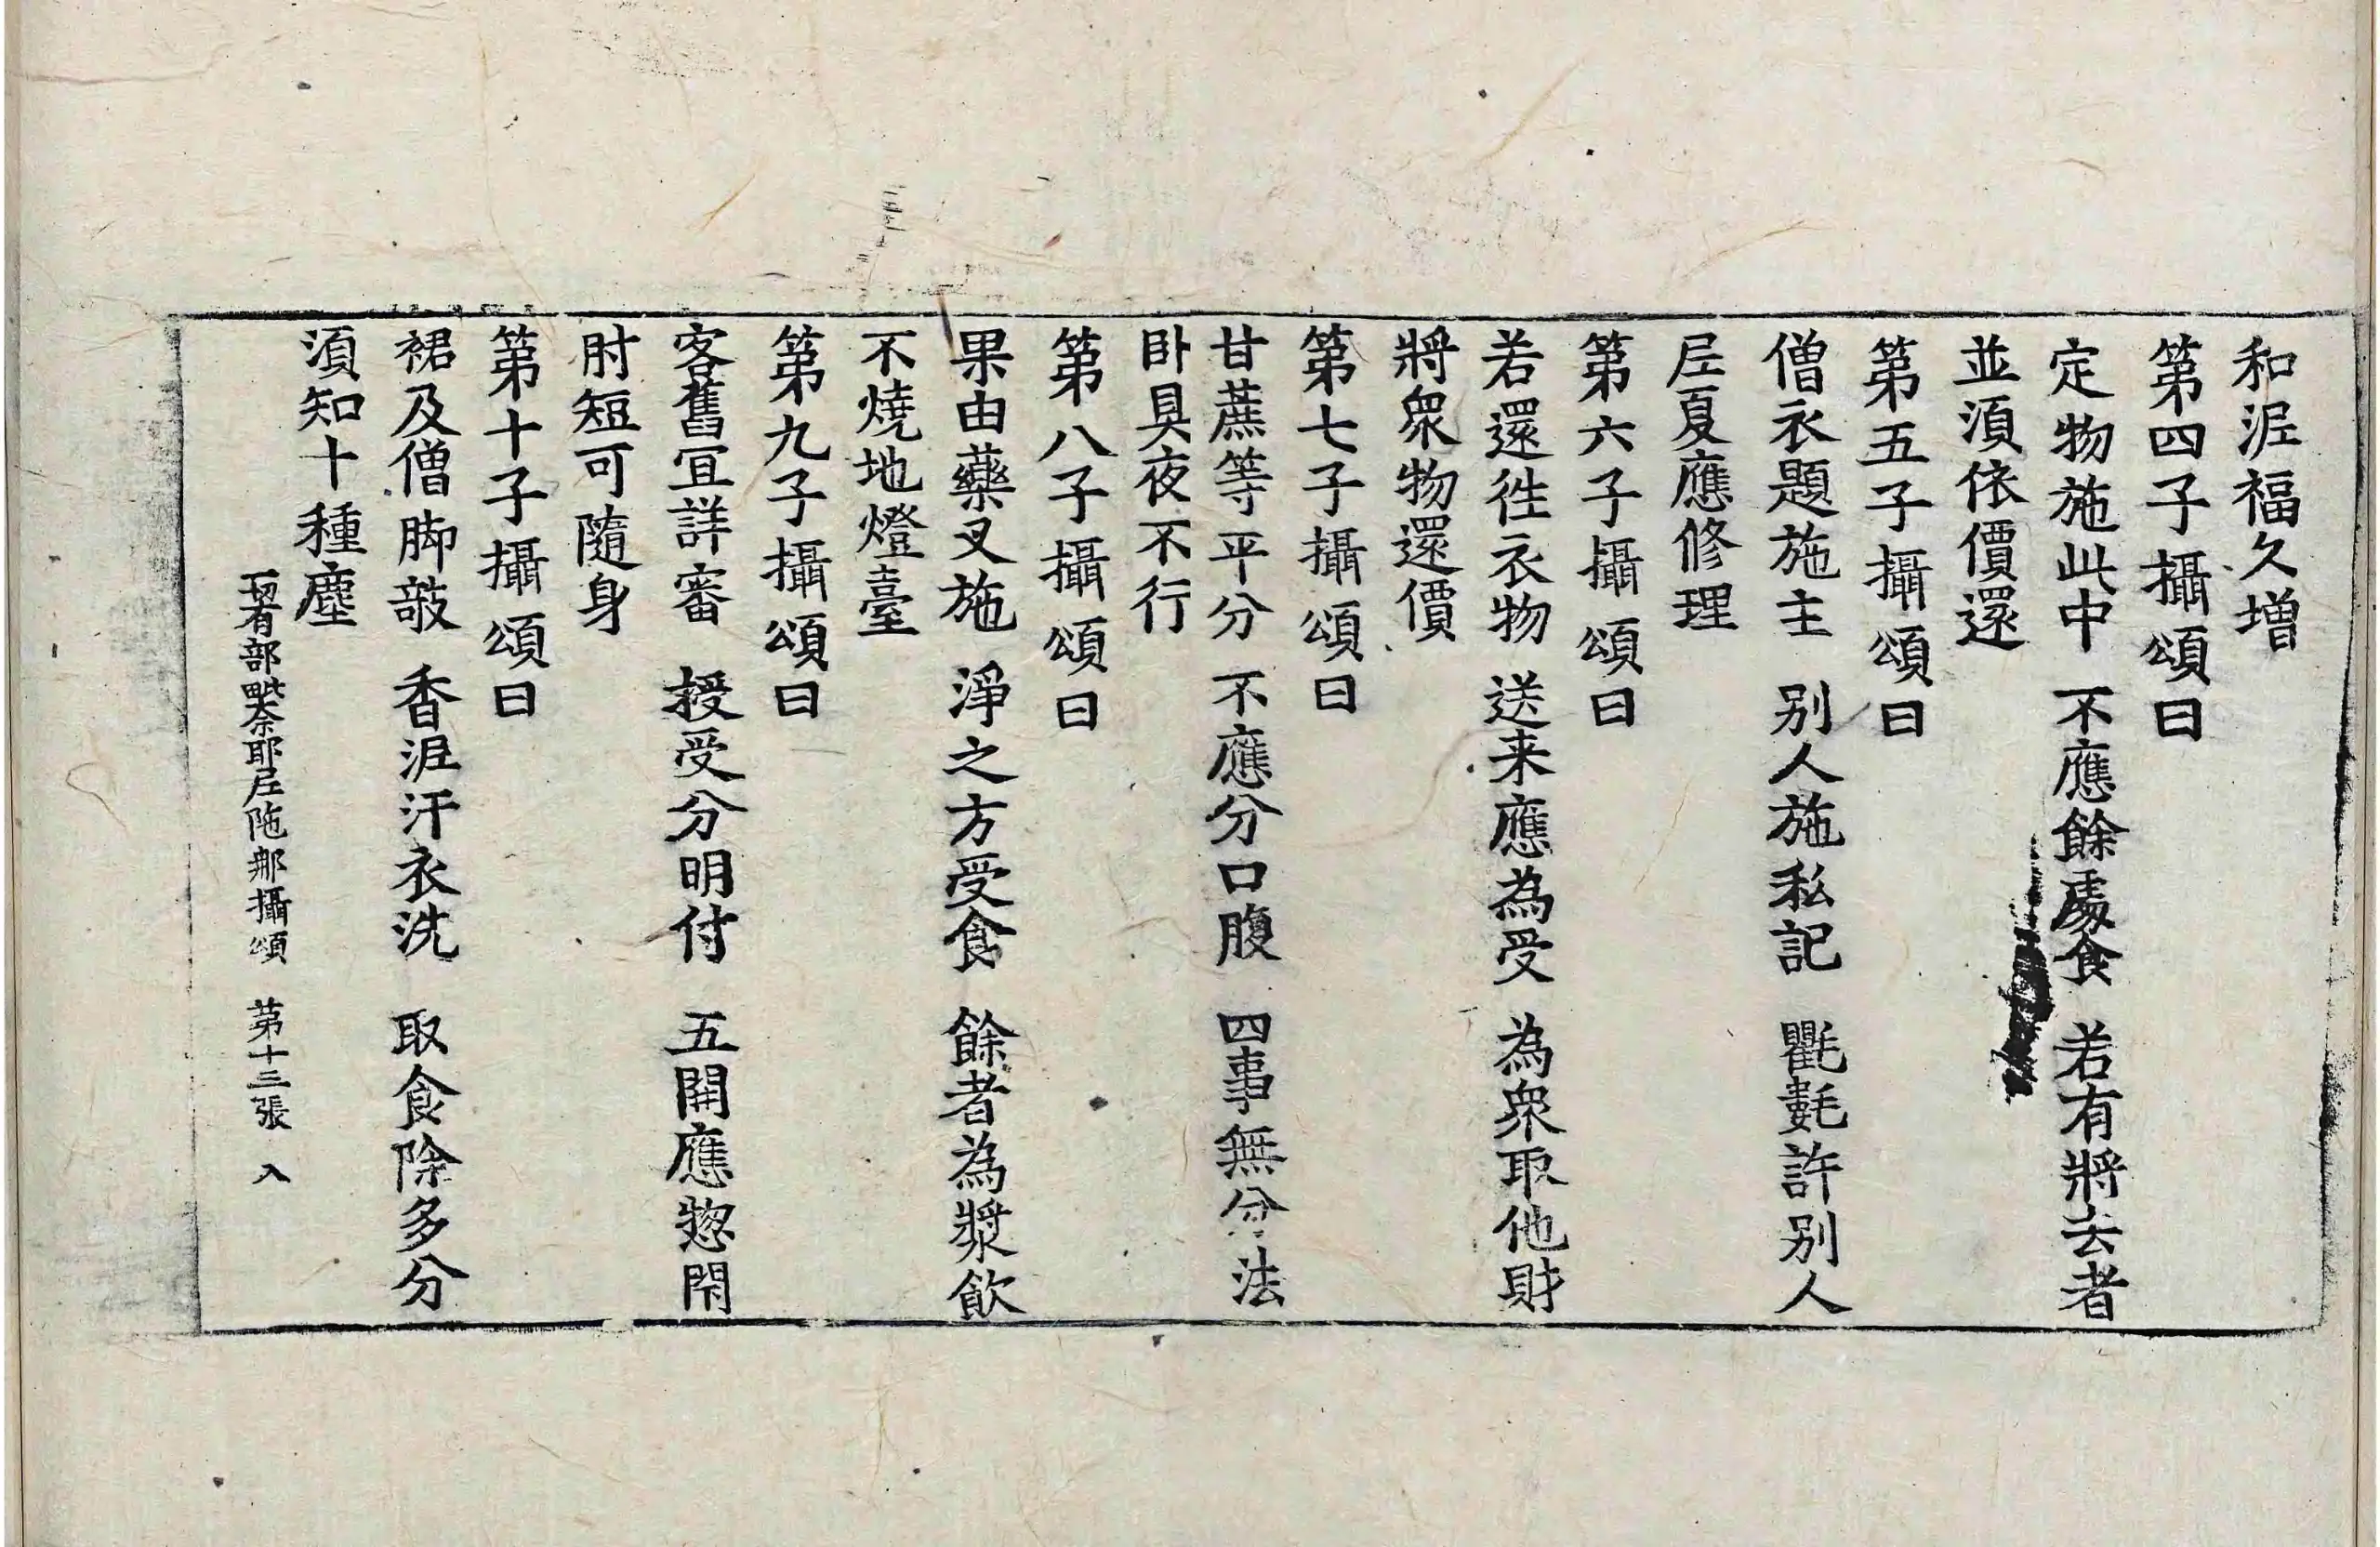 和泥福久增
第四子攝頌曰
定物施此中 不應餘處食 若有將去者
並須依價還
第五子攝頌曰
僧衣題施主 別人施私記 氍毹許別人
尼夏應修理
第六子攝頌曰
若還往衣物 送来應為受 為衆取他財
將衆物還價
第七子攝頌曰
甘蔗等平分 不應分口腹 四事無分法
卧具夜不行
第八子攝頌曰
果由藥叉施 淨之方受食 餘者為漿飲
不燒地燈臺
第九子攝頌曰
客舊宜詳審 授受分明付 五開應惣閇
肘短可隨身
第十子攝頌曰
裙及僧脚㩻 香泥汗衣洗 取食除多分
須知十種塵
一切有部毗奈耶尼陁那攝頌 苐十三張 入